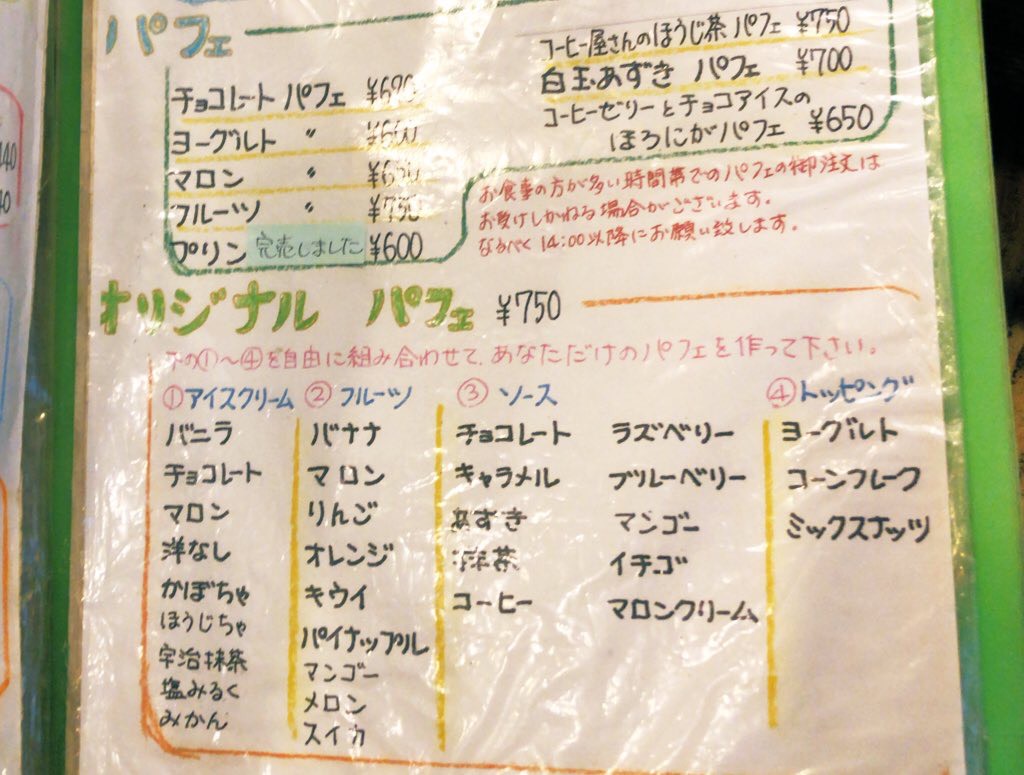 パフェ
チョコレート パフェ ¥690
ヨーグルト 〃 ¥660
マロン 〃 ¥650
フルーツ 〃 ¥750
プリン 完売しました ¥600
コーヒー屋さんのほうじ茶 パフェ ¥750
白玉あずき パフェ ¥700
コーヒーゼリーとチョコアイスの
ほろにがパフェ ¥650
お食事の方が多い時間帯でのパフェの御注文は
お受けしかねる場合がございます。
なるべく14:00以降にお願い致します。
オリジナル パフェ ¥750
下の①～④を自由に組み合わせて、あなただけのパフェを作って下さい。
①アイスクリーム
バニラ
チョコレート
マロン
洋なし
かぼちゃ
ほうじちゃ
宇治抹茶
塩みるく
みかん
②フルーツ
バナナ
マロン
りんご
オレンジ
キウイ
パイナップル
マンゴー
メロン
スイカ
③ソース
チョコレート
キャラメル
あずき
抹茶
コーヒー
ラズベリー
ブルーベリー
マンゴー
イチゴ
マロンクリーム
④トッピング
ヨーグルト
コーンフレーク
ミックスナッツ